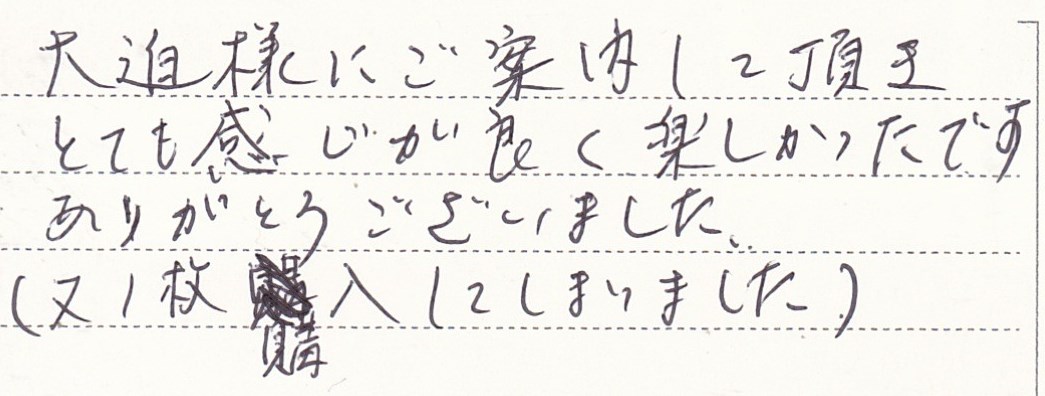 大迫様にご案内して頂き
とても感じが良く楽しかったです
ありがとうございました。
(又1枚購入してしまいました)